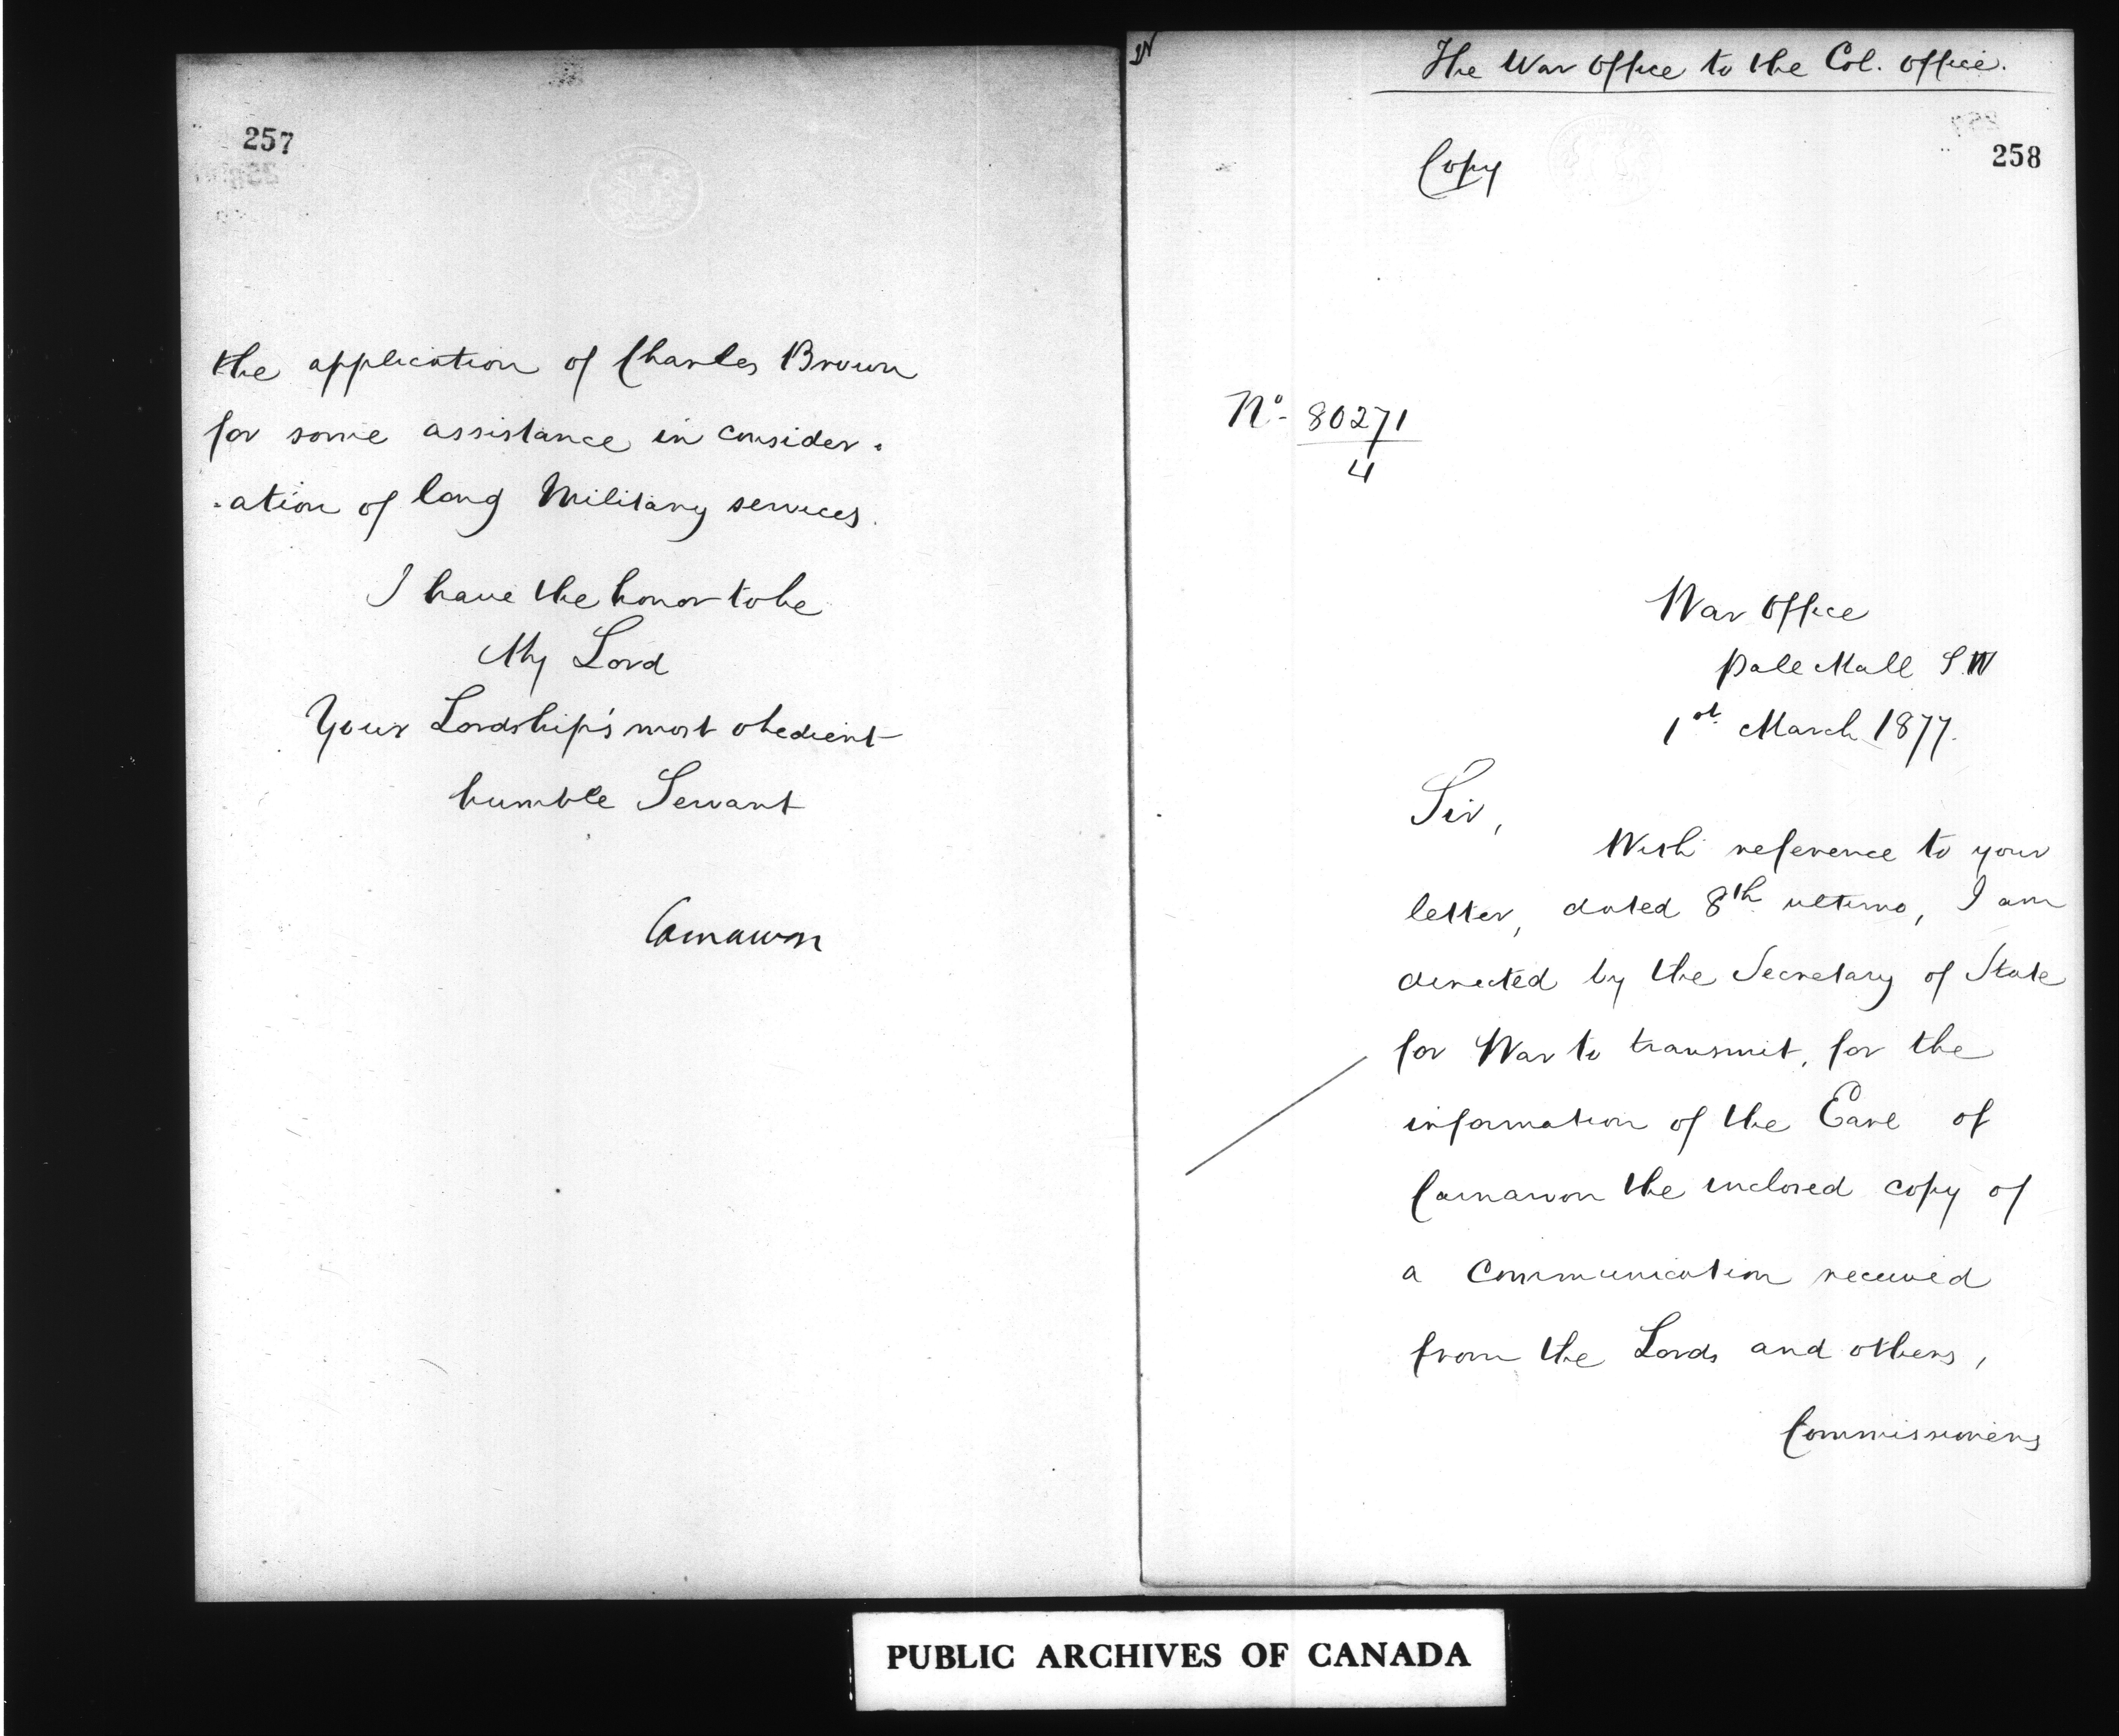 257
the application of Charles Brown
for some assistance in consider=
=ation of long Military services.
I have the honor to be
My Lord
Your Lordship's most obedient
humble Servant
Carnarvon
The War Office to the Col. Office.
258
Copy
No. 80271
4
War Office
Pale Mall S.W
1st March 1877.
Sir,
With reference to your
letter, dated 8th ultimo, I am
directed by the Secretary of State
for War to transmit, for the
information of the Earl of
Carnarvon the inclosed copy of
a Communication received
from the Lords and others,
Commissioners
PUBLIC ARCHIVES OF CANADA